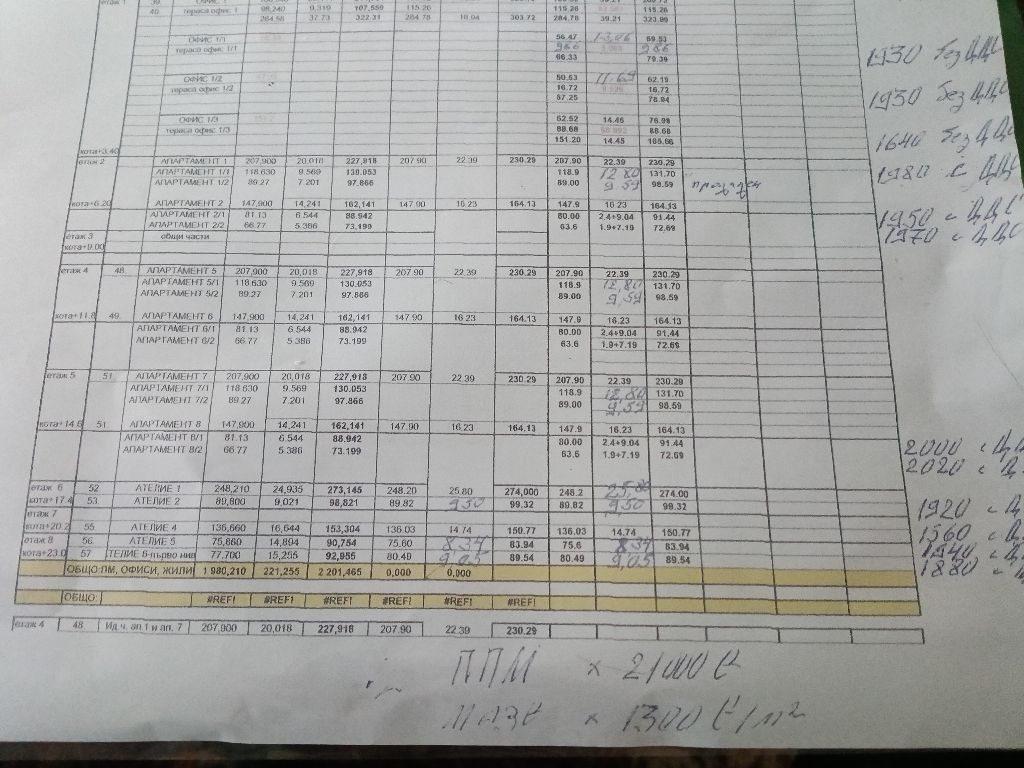 етаж 1 39. ОФИС 1
40. тераса офис 1 98,240 9,319 107,559 115.26 115.26 115.26
284.58 37.73 322.31 284.78 18.94 303.72 284.78 39.21 323.99
ОФИС 1/1 56.47 13,06 69.53 1930 без ДДС
тераса офис 1/1 9.86 9.86
66.33 79.39
ОФИС 1/2 50.53 11.69 62.19 1930 без ДДС
тераса офис 1/2 16.72 16.72
67.25 78.94
ОФИС 1/3 62.52 14.46 76.98 1640 без ДДС
тераса офис 1/3 88.68 88.68
кота+3.40 151.20 14.45 165.66
етаж 2 АПАРТАМЕНТ 1 207,900 20,018 227,918 207.90 22.39 230.29 207.90 22.39 230.29 1980 с ДДС
АПАРТАМЕНТ 1/1 118.630 9.569 130.053 118.9 12.80 131.70
АПАРТАМЕНТ 1/2 89.27 7.201 97.866 89.00 9.59 98.59
кота+6.20 АПАРТАМЕНТ 2 147,900 14,241 162,141 147.90 16.23 164.13 147.9 16.23 164.13
АПАРТАМЕНТ 2/1 81.13 6.544 88.942 80.00 2.4+9.04 91.44 1950 с ДДС
АПАРТАМЕНТ 2/2 66.77 5.386 73.199 63.6 1.9+7.19 72.69 1970 с ДДС
етаж 3 общи части
кота+9.00
етаж 4 48. АПАРТАМЕНТ 5 207,900 20,018 227,918 207.90 22.39 230.29 207.90 22.39 230.29
АПАРТАМЕНТ 5/1 118.630 9.569 130.053 118.9 12,80 131.70
АПАРТАМЕНТ 5/2 89.27 7.201 97.866 89.00 9,59 98.59
кота+11.8 49. АПАРТАМЕНТ 6 147,900 14,241 162,141 147.90 16.23 164.13 147.9 16.23 164.13
АПАРТАМЕНТ 6/1 81.13 6.544 88.942 80.00 2.4+9.04 91.44
АПАРТАМЕНТ 6/2 66.77 5.386 73.199 63.6 1.9+7.19 72.69
етаж 5 51. АПАРТАМЕНТ 7 207,900 20,018 227,918 207.90 22.39 230.29 207.90 22.39 230.29
АПАРТАМЕНТ 7/1 118.630 9.569 130.053 118.9 12,80 131.70
АПАРТАМЕНТ 7/2 89.27 7.201 97.866 89.00 9,59 98.59
кота+14.6 51. АПАРТАМЕНТ 8 147,900 14,241 162,141 147.90 16.23 164.13 147.9 16.23 164.13
АПАРТАМЕНТ 8/1 81.13 6.544 88.942 80.00 2.4+9.04 91.44 2000 с
АПАРТАМЕНТ 8/2 66.77 5.386 73.199 63.6 1.9+7.19 72.69 2020 с
етаж 6 52. АТЕЛИЕ 1 248,210 24,935 273,145 248.20 25.80 274,000 248.2 25,80 274.00
кота+17.4 53. АТЕЛИЕ 2 89,800 9,021 98,821 89.82 9,50 99.32 89.82 9,50 99.32 1920
етаж 7
кота+20.2 55. АТЕЛИЕ 4 136,660 16,644 153,304 136.03 14.74 150.77 136.03 14.74 150.77 1560
етаж 8 56. АТЕЛИЕ 5 75,860 14,894 90,754 75.60 8.34 83.94 75.6 8.34 83.94 1940
кота+23.0 57 ТЕЛИЕ 6-първо нив 77,700 15,255 92,955 80.49 9,05 89.54 80.49 9,05 89.54 1880
ОБЩО:ПМ, ОФИСИ, ЖИЛИ 1 980,210 221,255 2 201,465 0,000 0,000
ОБЩО: #REF! #REF! #REF! #REF! #REF! #REF!
етаж 4 48. Ид.ч. ап.1 и ап. 7 207,900 20,018 227,918 207.90 22.39 230.29
ППМ x 21000 €
МАЗЕ x 1300 €/m²